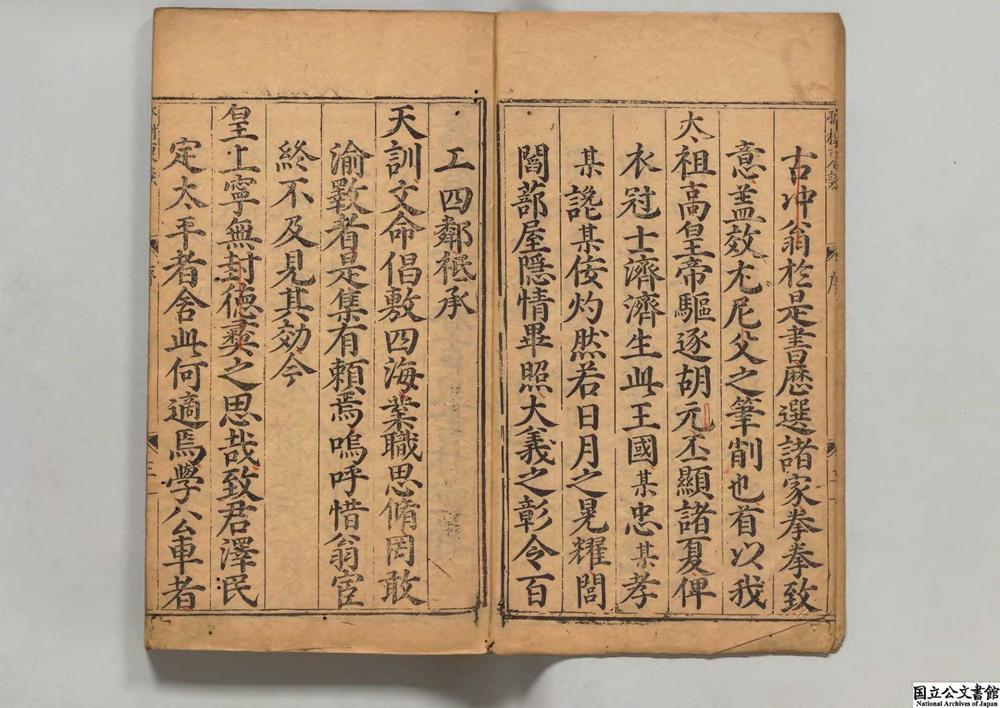 古冲翁於是書歷選諸家拳拳致
意蓋效尤尼父之筆削也首以我
太祖高皇帝驅逐胡元丕顯諸夏俾
衣冠士濟濟生此王國某忠某孝
某讒某佞灼然若日月之晃耀閭
閻蔀屋隱情畢照大義之彰令百
工四鄰祗承
天訓文命倡敷四海業職思脩罔敢
渝斁者是集有賴焉嗚呼惜翁宦
終不及見其効今
皇上寧無封德彝之思哉致君澤民
定太平者舍此何適焉學公車者
国立公文書館
National Archives of Japan